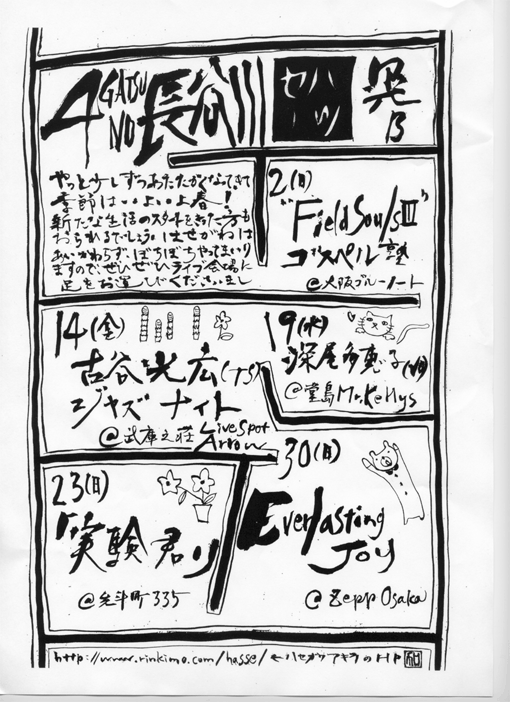 4GATSU NO 長谷川
ハセガワ
晃
やっと少しずつあたたかくなってきて
季節はいよいよ春!
新たな生活のスタートをきった方も
おられるでしょう。はせがわは
あいかわらず、ぼちぼちやってまいり
ますので、ぜひぜひライブ会場に
足をお運びくださいまし
2(日)
"Field Souls III"
ゴスペル塾
@大阪ブルーノート
14(金)
古谷光広(TS)
ジャズナイト
@武庫之荘 Live Spot
Arrow
19(水)
深尾多恵子(VO)
@堂島Mr.Kellys
23(日)
『実験君』
@先斗町335
30(日)
Everlasting
Joy
@Zepp Osaka
http://www.rinkimo.com/hasse/ ←ハセガワアキラのHP